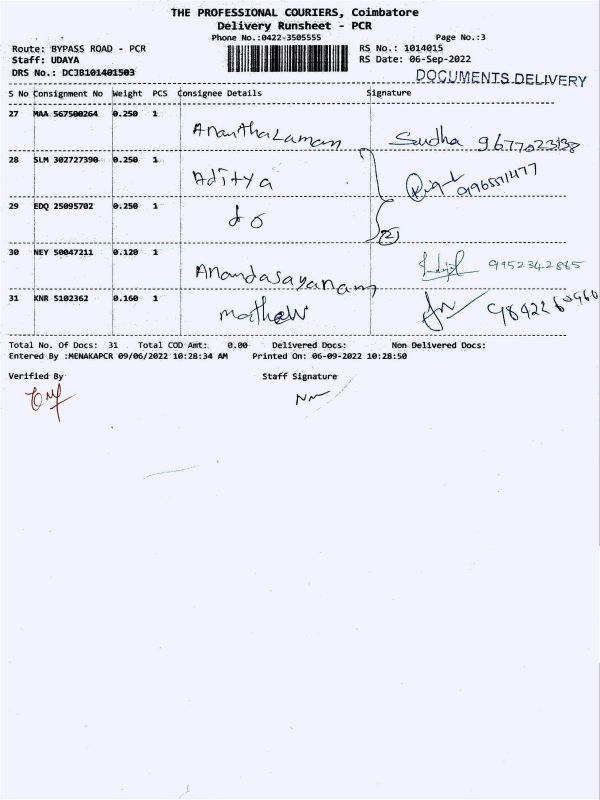 THE PROFESSIONAL COURIERS, Coimbatore
Delivery Runsheet - PCR
Phone No.:0422-3505555 Page No.:3
Route: BYPASS ROAD - PCR RS No.: 1014015
Staff: UDAYA RS Date: 06-Sep-2022
DRS No.: DCJB101401503 DOCUMENTS DELIVERY
S No Consignment No Weight PCS Consignee Details Signature
27 MAA 567500264 0.250 1
Anantharaman Sudha
28 SLM 302727390 0.250 1
Aditya
29 EDQ 25095702 0.250 1
do (2)
30 NEY 50047211 0.120 1
Anandasayanam 9952342865
31 KNR 5102362 0.160 1
mathew
Total No. Of Docs: 31 Total COD Amt: 0.00 Delivered Docs: Non Delivered Docs:
Entered By :MENAKAPCR 09/06/2022 10:28:34 AM Printed On: 06-09-2022 10:28:50
Verified By Staff Signature